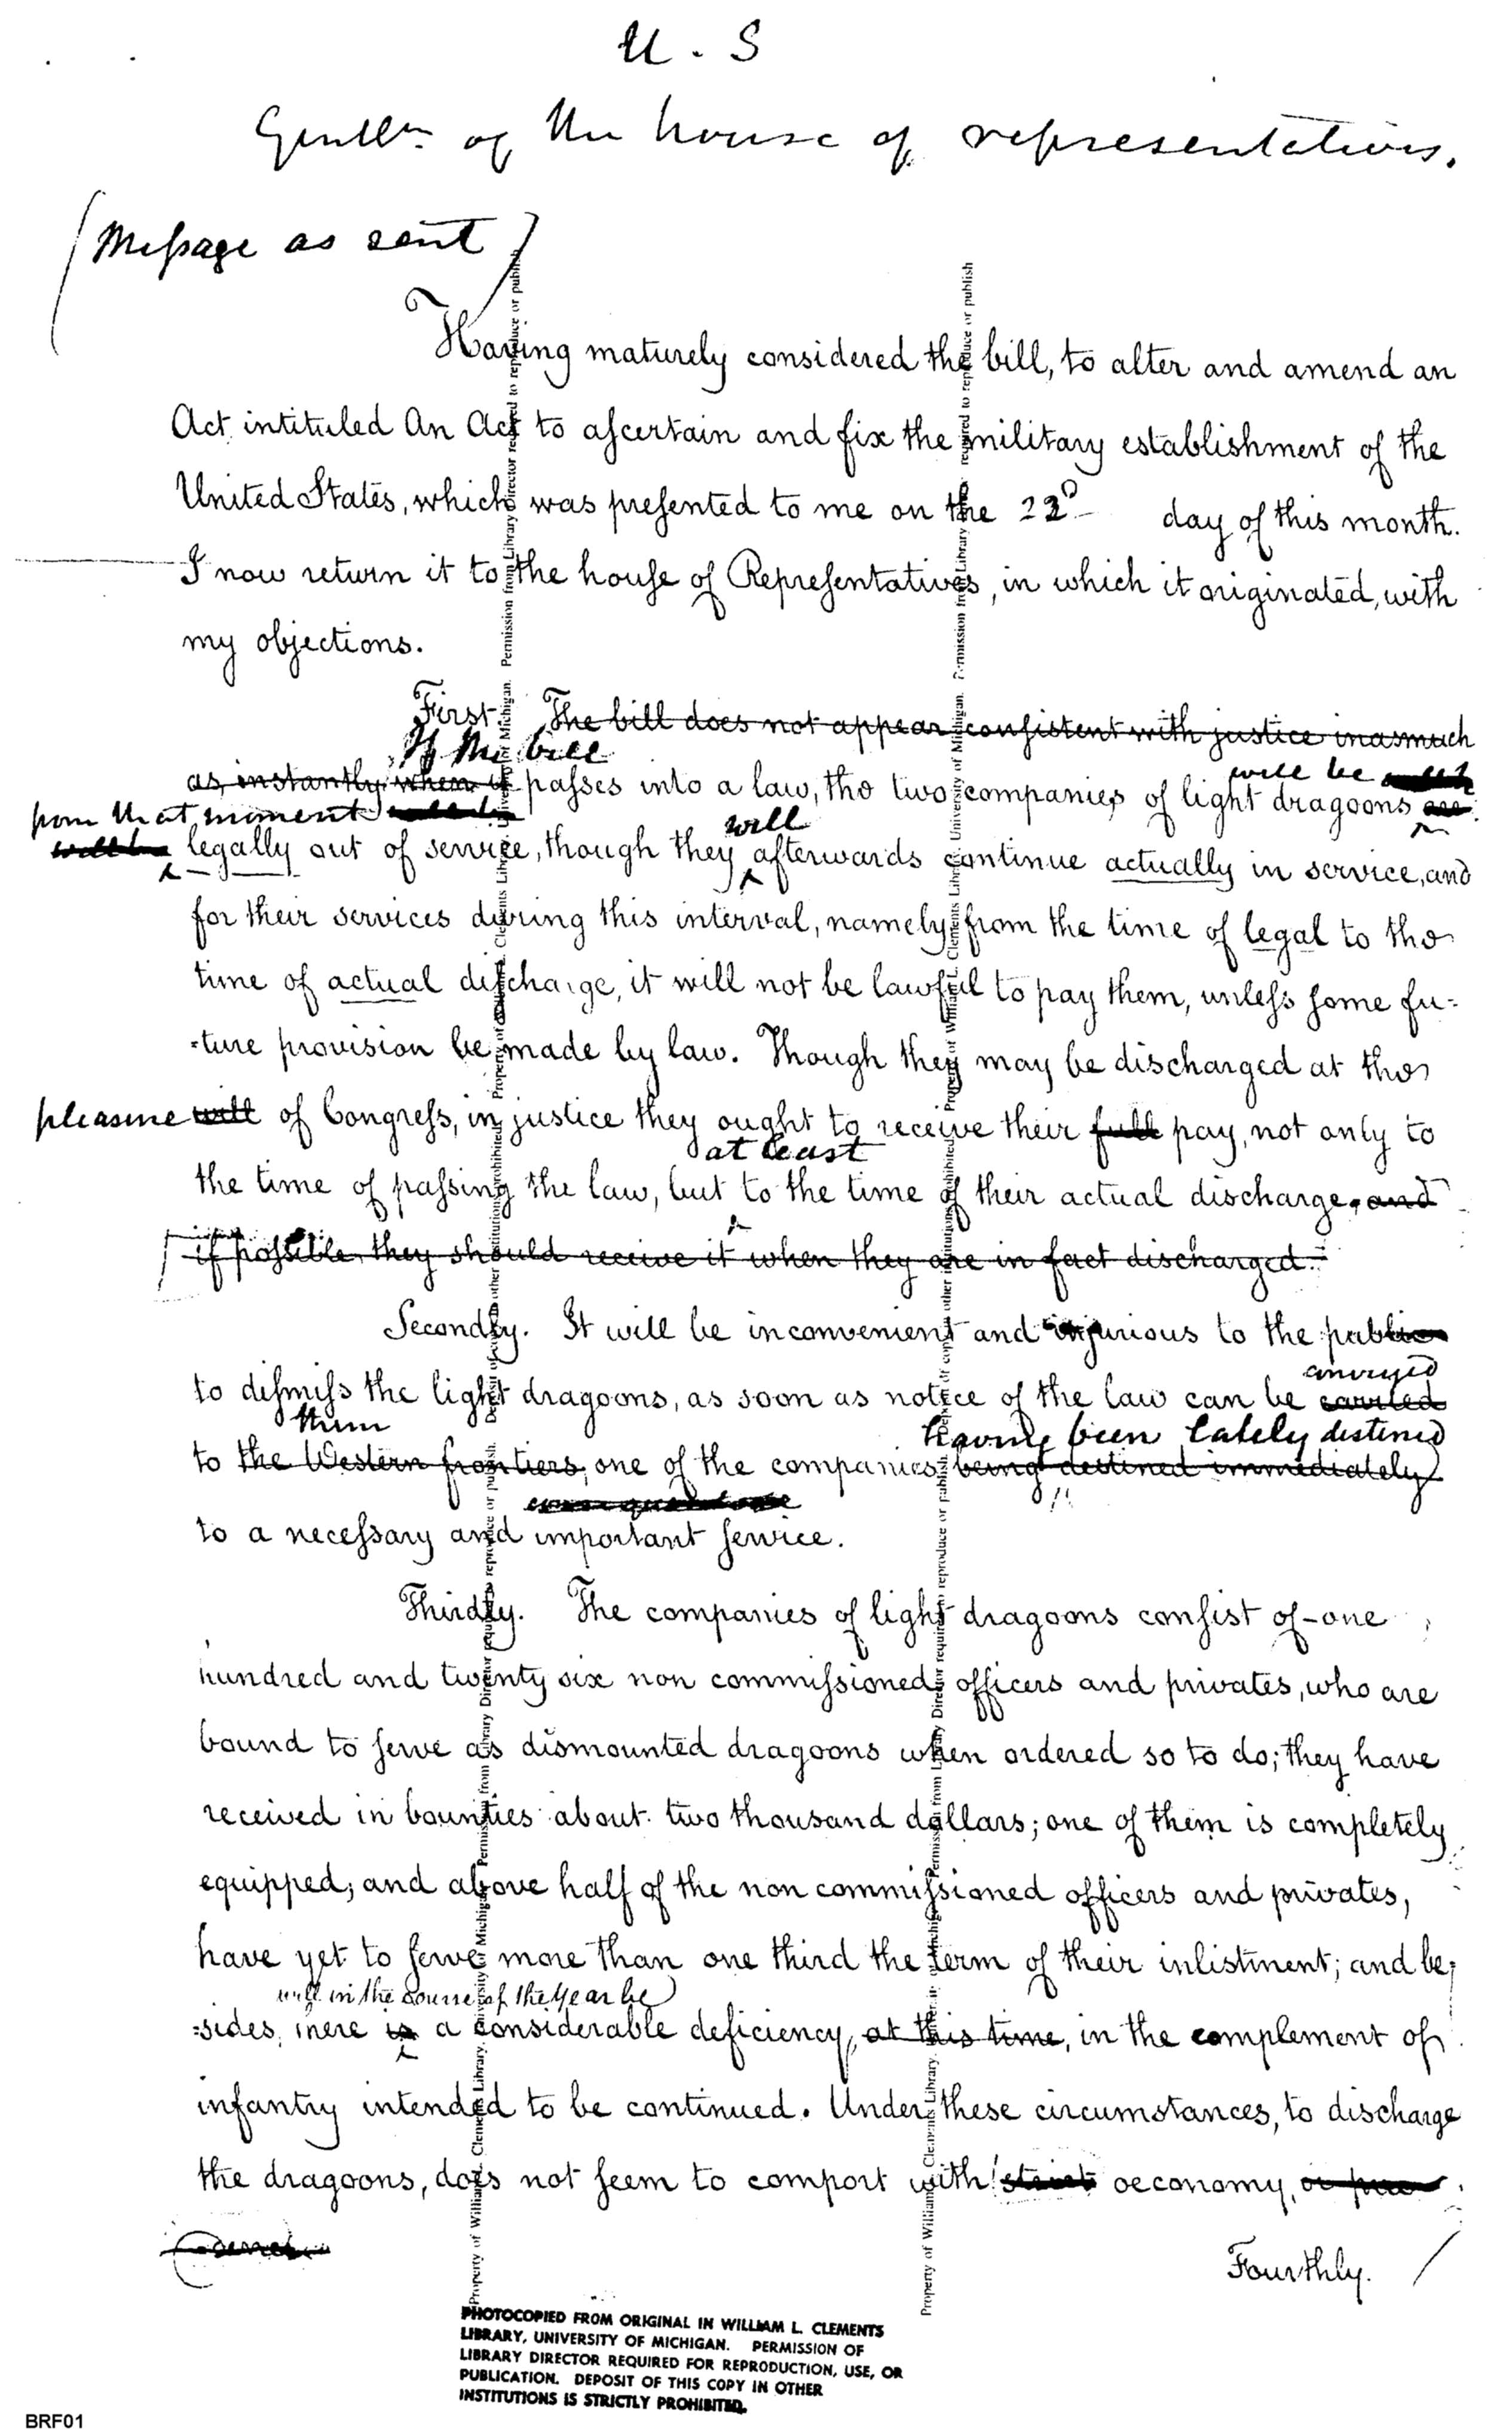 U. S
Gentlen. of the house of representatives.
(Message as sent)
Having maturely considered the bill, to alter and amend an
Act intituled An Act to ascertain and fix the military establishment of the
United States, which was presented to me on the 22d day of this month.
I now return it to the house of Representatives, in which it originated, with
my objections.
First The bill does not appear consistent with justice inasmuch
If the bill
as instantly when it passes into a law, the two companies of light dragoons are
will be
from that moment
will be legally out of service, though they afterwards continue actually in service, and
will
for their services during this interval, namely from the time of legal to the
time of actual discharge, it will not be lawful to pay them, unless some fu=
=ture provision be made by law. Though they may be discharged at the
pleasure will of Congress, in justice they ought to receive their full pay, not only to
at least
the time of passing the law, but to the time of their actual discharge, and
if possible, they should receive it when they are in fact discharged.
Secondly. It will be inconvenient and injurious to the public
to dismiss the light dragoons, as soon as notice of the law can be carried
conveyed
them
to the Western frontiers, one of the companies being destined immediately
having been lately destined
to a necessary and important service.
Thirdly. The companies of light dragoons consist of one
hundred and twenty six non commissioned officers and privates, who are
bound to serve as dismounted dragoons when ordered so to do; they have
received in bounties about two thousand dollars; one of them is completely
equipped; and above half of the non commissioned officers and privates,
have yet to serve more than one third the term of their inlistment; and be=
will in the course of the year be
=sides, there is a considerable deficiency, at this time, in the complement of
infantry intended to be continued. Under these circumstances, to discharge
the dragoons, does not seem to comport with strict oeconomy, or pru
dence.
Fourthly.
Property of William L. Clements Library, University of Michigan. Permission from Library Director required to reproduce or publish
PHOTOCOPIED FROM ORIGINAL IN WILLIAM L. CLEMENTS
LIBRARY, UNIVERSITY OF MICHIGAN. PERMISSION OF
LIBRARY DIRECTOR REQUIRED FOR REPRODUCTION, USE, OR
PUBLICATION. DEPOSIT OF THIS COPY IN OTHER
INSTITUTIONS IS STRICTLY PROHIBITED.
BRF01